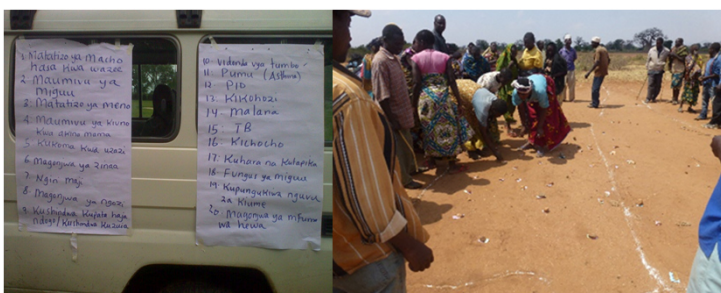 1. Matatizo ya Macho
hasa kwa wazee
2. Maumivu ya
Miguu
3. Matatizo ya meno
4. Maumivu ya kiuno
kwa akina mama
5. Kukoma kwa uzazi
6. Magonjwa ya zinaa
7. Ngiri maji
8. Magonjwa ya ngozi
9. Kushindwa Kupata haja
ndogo/Kushindwa Kuzuia
10. Vidonda vya tumbo
11. Pumu (Asthma)
12. PID
13. Kikohozi
14. Malaria
15. TB
16. Kichocho
17. Kuhara na Kutapika
18. Fungus ya miguu
19. Kupungukiwa nguvu
za Kiume
20. Magonjwa ya mfumo
wa hewa